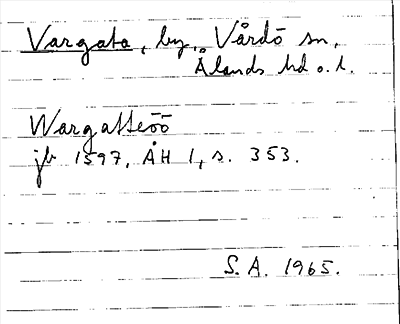 Vargata, by, Vårdö sn,
Ålands hd o. l.
Wargatteöö
jb 1597, ÅH 1, s. 353.
S. A. 1965.